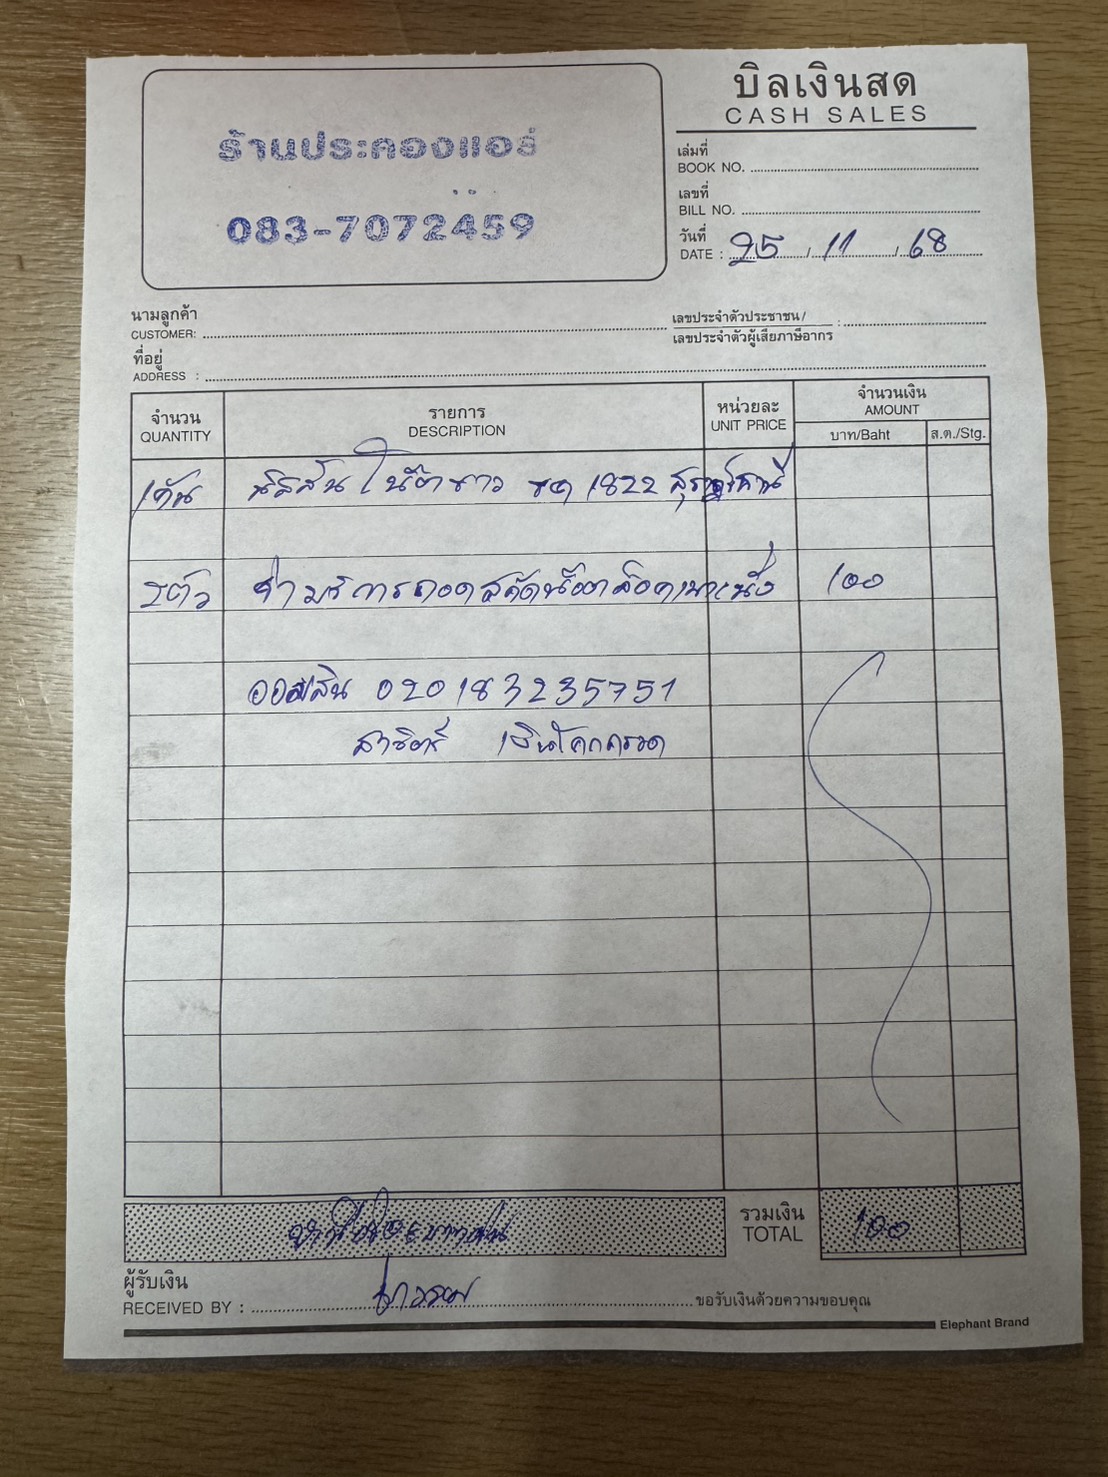 บิลเงินสด
CASH SALES
ร้านประคองแอร์
083-7072459
เล่มที่
BOOK NO.
เลขที่
BILL NO.
วันที่
DATE : 25 / 11 / 68
นามลูกค้า
CUSTOMER:
เลขประจำตัวประชาชน /
เลขประจำตัวผู้เสียภาษีอากร :
ที่อยู่
ADDRESS :
จำนวน
QUANTITY
รายการ
DESCRIPTION
หน่วยละ
UNIT PRICE
จำนวนเงิน
AMOUNT
บาท/Baht
ส.ต./Stg.
1คัน นิสสัน ขาว 1822 สุราษร์ธานี
ค่าบริการถอดสกัดน๊อตล๊อคเบาะนั่ง 100
ออมสิน 020183235751
รวมเงิน
TOTAL 100
ผู้รับเงิน
RECEIVED BY :
ขอรับเงินด้วยความขอบคุณ
Elephant Brand